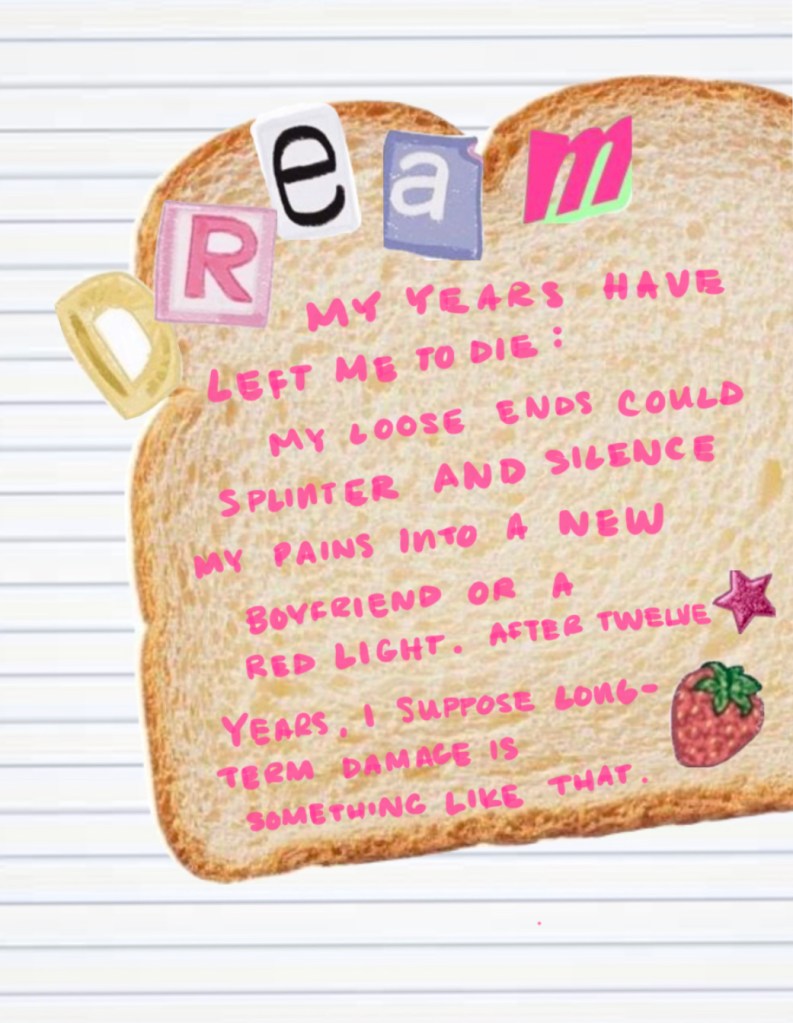 DReam
MY YEARS HAVE
LEFT ME TO DIE:
MY LOOSE ENDS COULD
SPLINTER AND SILENCE
MY PAINS INTO A NEW
BOYFRIEND OR A
RED LIGHT. AFTER TWELVE
YEARS, I SUPPOSE LONG-
TERM DAMAGE IS
SOMETHING LIKE THAT.